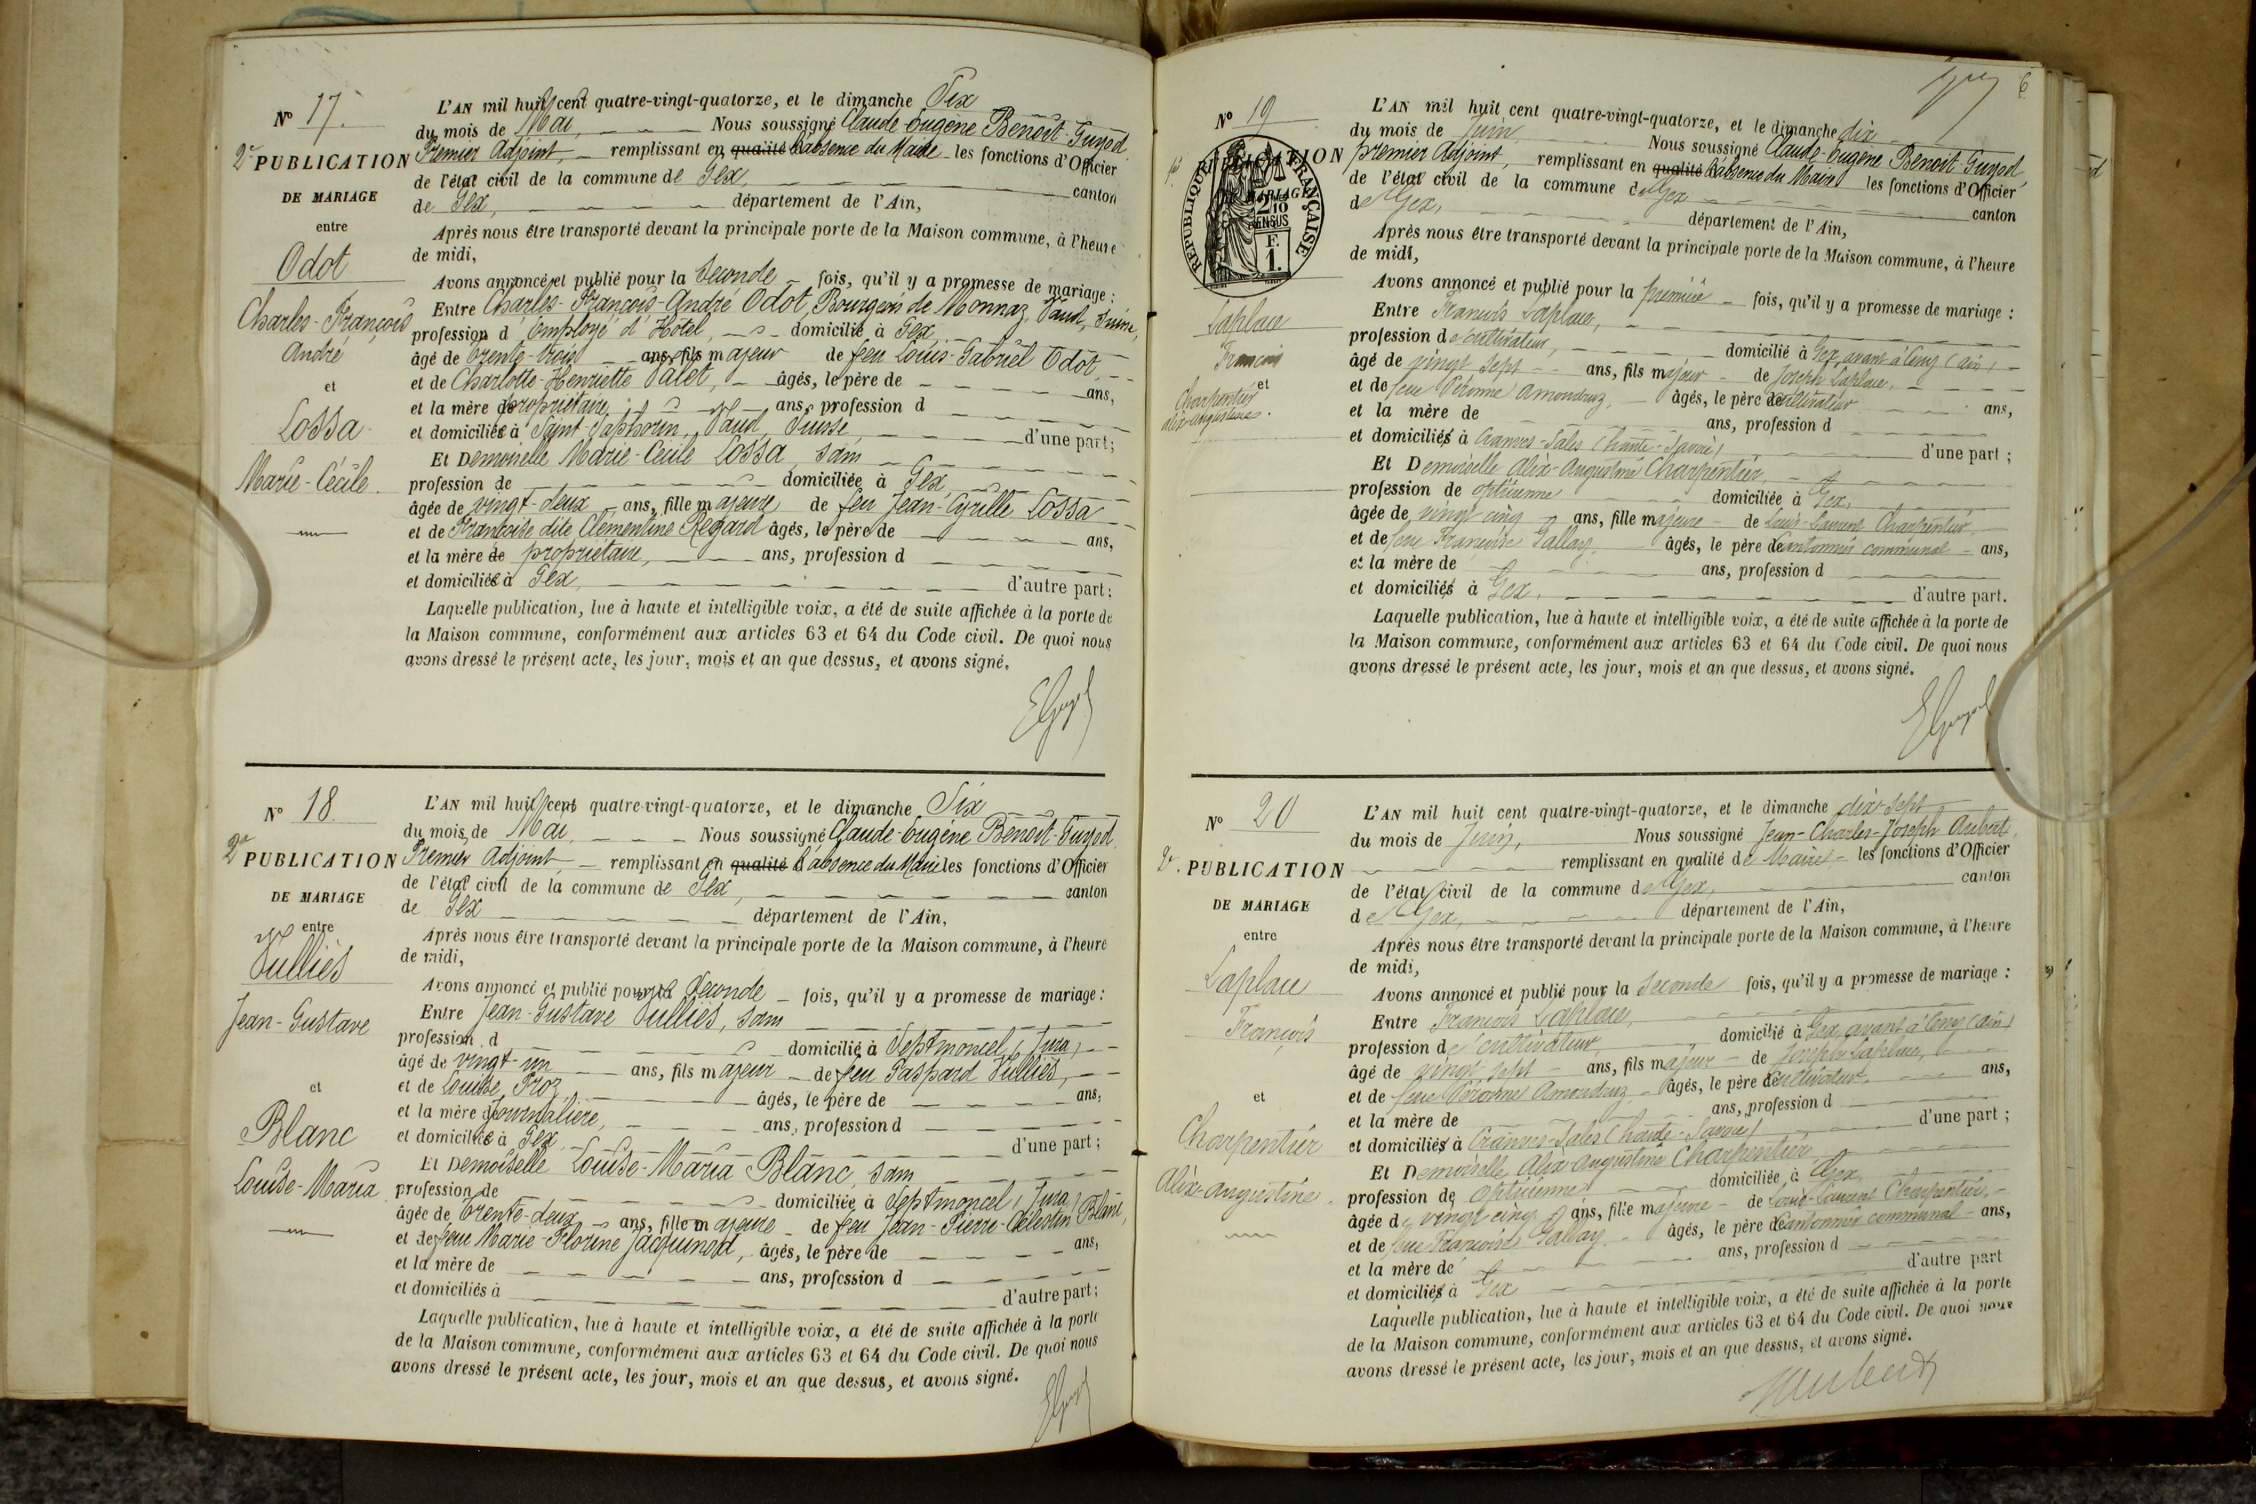 N° 17.
2e PUBLICATION
DE MARIAGE
entre
Odot
Charles-François
André
et
Lossa
Marie-Cécile.
L'AN mil huit cent quatre-vingt-quatorze, et le dimanche Six
du mois de Mai, Nous soussigné Claude-Eugène Benoit-Guyod
Premier Adjoint, remplissant en qualité l'absence du Maire les fonctions d'Officier
de l'état civil de la commune de Gex, canton
de Gex, département de l'Ain,
Après nous être transporté devant la principale porte de la Maison commune, à l'heure
de midi,
Avons annoncé et publié pour la Seconde fois, qu'il y a promesse de mariage :
Entre Charles-François-André Odot, Bourgeois de Monnaz, Vaud, Suisse,
profession d'Employé d'Hôtel, domicilié à Gex,
âgé de trente-trois ans, fils majeur de feu Louis-Gabriel Odot,
et de Charlotte-Henriette âgés, le père de ans,
et la mère de propriétaire, ans, profession d
et domiciliée à Saint-Saphorin, Vaud, Suisse, d'une part;
Et Demoiselle Marie-Cécile Lossa, sans
profession de domiciliée à Gex,
âgée de vingt-deux ans, fille majeure de feu Jean-Cyrille Lossa
et de Françoise dite Clémentine Regard âgés, le père de ans,
et la mère de propriétaire, ans, profession d
et domiciliée à Gex, d'autre part;
Laquelle publication, lue à haute et intelligible voix, a été de suite affichée à la porte de
la Maison commune, conformément aux articles 63 et 64 du Code civil. De quoi nous
avons dressé le présent acte, les jour, mois et an que dessus, et avons signé.
EGuyod
N° 18
2e PUBLICATION
DE MARIAGE
entre
Vulliès
Jean-Gustave
et
Blanc
Louise-Maria
L'AN mil huit cent quatre-vingt-quatorze, et le dimanche Six
du mois de Mai, Nous soussigné Claude-Eugène Benoit-Guyod
Premier Adjoint, remplissant en qualité l'absence du Maire les fonctions d'Officier
de l'état civil de la commune de Gex, canton
de Gex département de l'Ain,
Après nous être transporté devant la principale porte de la Maison commune, à l'heure
de midi,
Avons annoncé et publié pour la Seconde fois, qu'il y a promesse de mariage :
Entre Jean-Gustave Vulliès, sans
profession d domicilié à Septmoncel (Jura)
âgé de vingt-un ans, fils majeur de feu Gaspard Vulliès,
et de Louise Proz, âgés, le père de ans,
et la mère de Journalière, ans, profession d
et domiciliée à Gex d'une part;
Et Demoiselle Louise-Maria Blanc, sans
profession de domiciliée à Septmoncel (Jura)
âgée de trente-deux ans, fille majeure de feu Jean-Pierre-Célestin Blanc,
et de feue Marie-Florine Jacquinod, âgés, le père de ans,
et la mère de ans, profession d
et domiciliés à d'autre part;
Laquelle publication, lue à haute et intelligible voix, a été de suite affichée à la porte
de la Maison commune, conformément aux articles 63 et 64 du Code civil. De quoi nous
avons dressé le présent acte, les jour, mois et an que dessus, et avons signé.
EGuyod
6
N° 19
PUBLICATION
DE MARIAGE
RÉPUBLIQUE FRANÇAISE
2/10
EN SUS
F.
1.
Laplace
François
et
Charpentier
Alix-Augustine.
L'AN mil huit cent quatre-vingt-quatorze, et le dimanche dix
du mois de Juin Nous soussigné Claude-Eugène Benoit-Guyod,
premier Adjoint, remplissant en qualité l'absence du Maire les fonctions d'Officier
de l'état civil de la commune de Gex canton
de Gex, département de l'Ain,
Après nous être transporté devant la principale porte de la Maison commune, à l'heure
de midi,
Avons annoncé et publié pour la première fois, qu'il y a promesse de mariage :
Entre François Laplace,
profession de cultivateur, domicilié à Gex, avant à Ceny (Ain)
âgé de vingt sept ans, fils majeur de Joseph Laplace,
et de feue Péronne Amoudruz, âgés, le père de cultivateur ans,
et la mère de ans, profession d
et domiciliés à Cranves-Sales (haute-Savoie) d'une part;
Et Demoiselle Alix-Augustine Charpentier,
profession de opticienne domiciliée à Gex,
âgée de vingt cinq ans, fille majeure de Louis-Laurent Charpentier,
et de feue Françoise Gallay âgés, le père de Cantonnier communal ans,
et la mère de ans, profession d
et domiciliés à Gex, d'autre part.
Laquelle publication, lue à haute et intelligible voix, a été de suite affichée à la porte de
la Maison commune, conformément aux articles 63 et 64 du Code civil. De quoi nous
avons dressé le présent acte, les jour, mois et an que dessus, et avons signé.
EGuyod
N° 20
2e. PUBLICATION
DE MARIAGE
entre
Laplace
François
et
Charpentier
Alix-Augustine.
L'AN mil huit cent quatre-vingt-quatorze, et le dimanche dix-sept
du mois de Juin, Nous soussigné Jean-Charles-Joseph Aubert,
remplissant en qualité de Maire les fonctions d'Officier
de l'état civil de la commune de Gex, canton
de Gex, département de l'Ain,
Après nous être transporté devant la principale porte de la Maison commune, à l'heure
de midi,
Avons annoncé et publié pour la Seconde fois, qu'il y a promesse de mariage :
Entre François Laplace,
profession de cultivateur, domicilié à Gex, avant à Ceny (Ain)
âgé de vingt sept ans, fils majeur de Joseph Laplace,
et de feue Péronne Amoudruz âgés, le père de Cultivateur, ans,
et la mère de ans, profession d
et domiciliés à Cranves-Sales (haute-Savoie) d'une part;
Et Demoiselle Alix-Augustine Charpentier
profession de Opticienne domiciliée à Gex
âgée de vingt cinq ans, fille majeure de Louis-Laurent Charpentier,
et de feue Françoise Gallay âgés, le père de Cantonnier communal ans,
et la mère de ans, profession d
et domiciliés à Gex d'autre part
Laquelle publication, lue à haute et intelligible voix, a été de suite affichée à la porte
de la Maison commune, conformément aux articles 63 et 64 du Code civil. De quoi nous
avons dressé le présent acte, les jour, mois et an que dessus, et avons signé.
Aubert